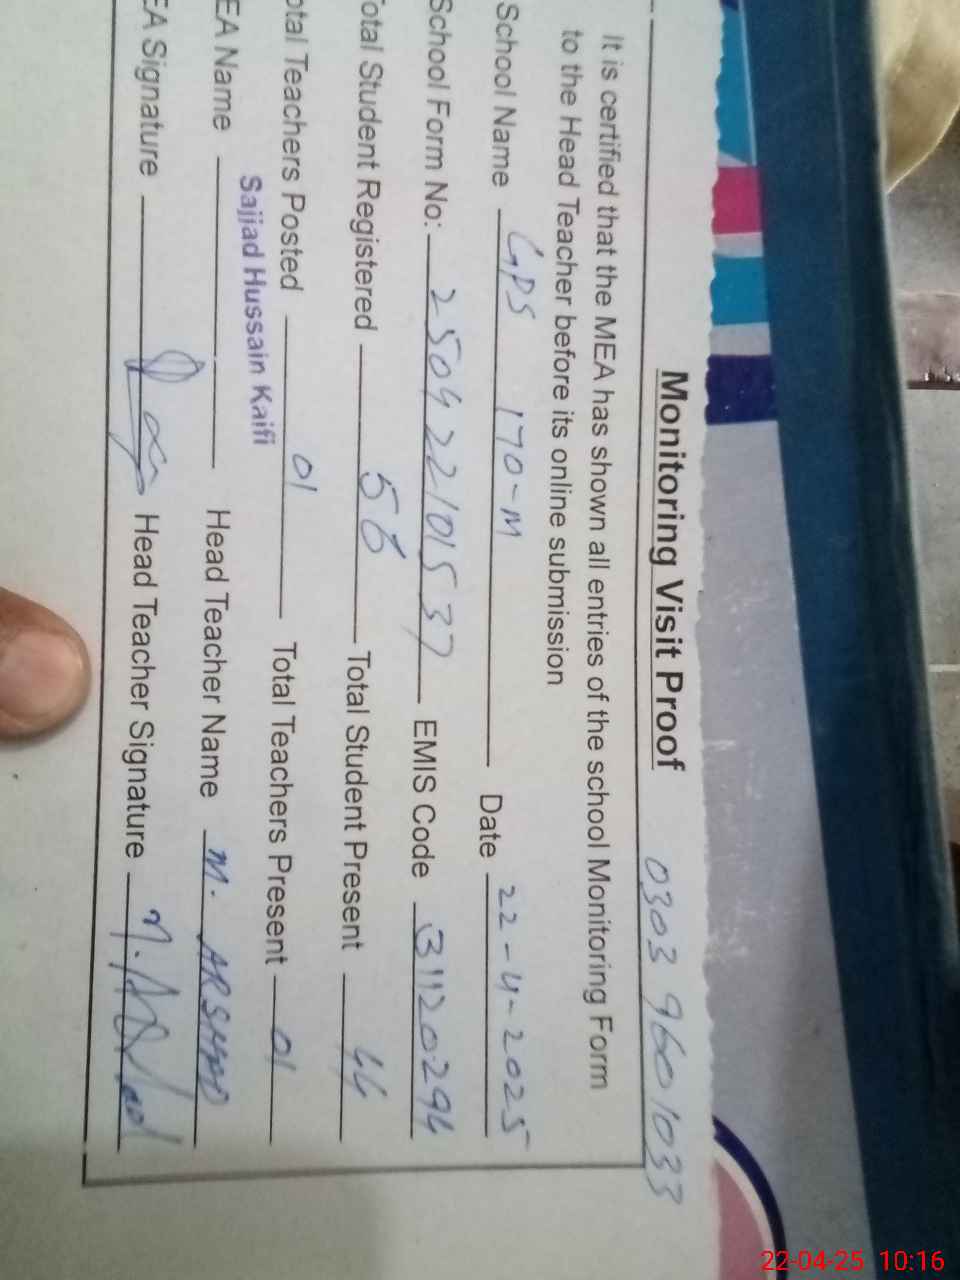 Monitoring Visit Proof 0303 9601033
It is certified that the MEA has shown all entries of the school Monitoring Form
to the Head Teacher before its online submission
School Name GPS 170-M Date 22-4-2025
School Form No: 250422101537 EMIS Code 31120294
otal Student Registered 56 Total Student Present 44
otal Teachers Posted 01 Total Teachers Present 01
Sajjad Hussain Kaifi
EA Name Head Teacher Name M. ARSHAD
EA Signature Head Teacher Signature
22-04-25 10:16